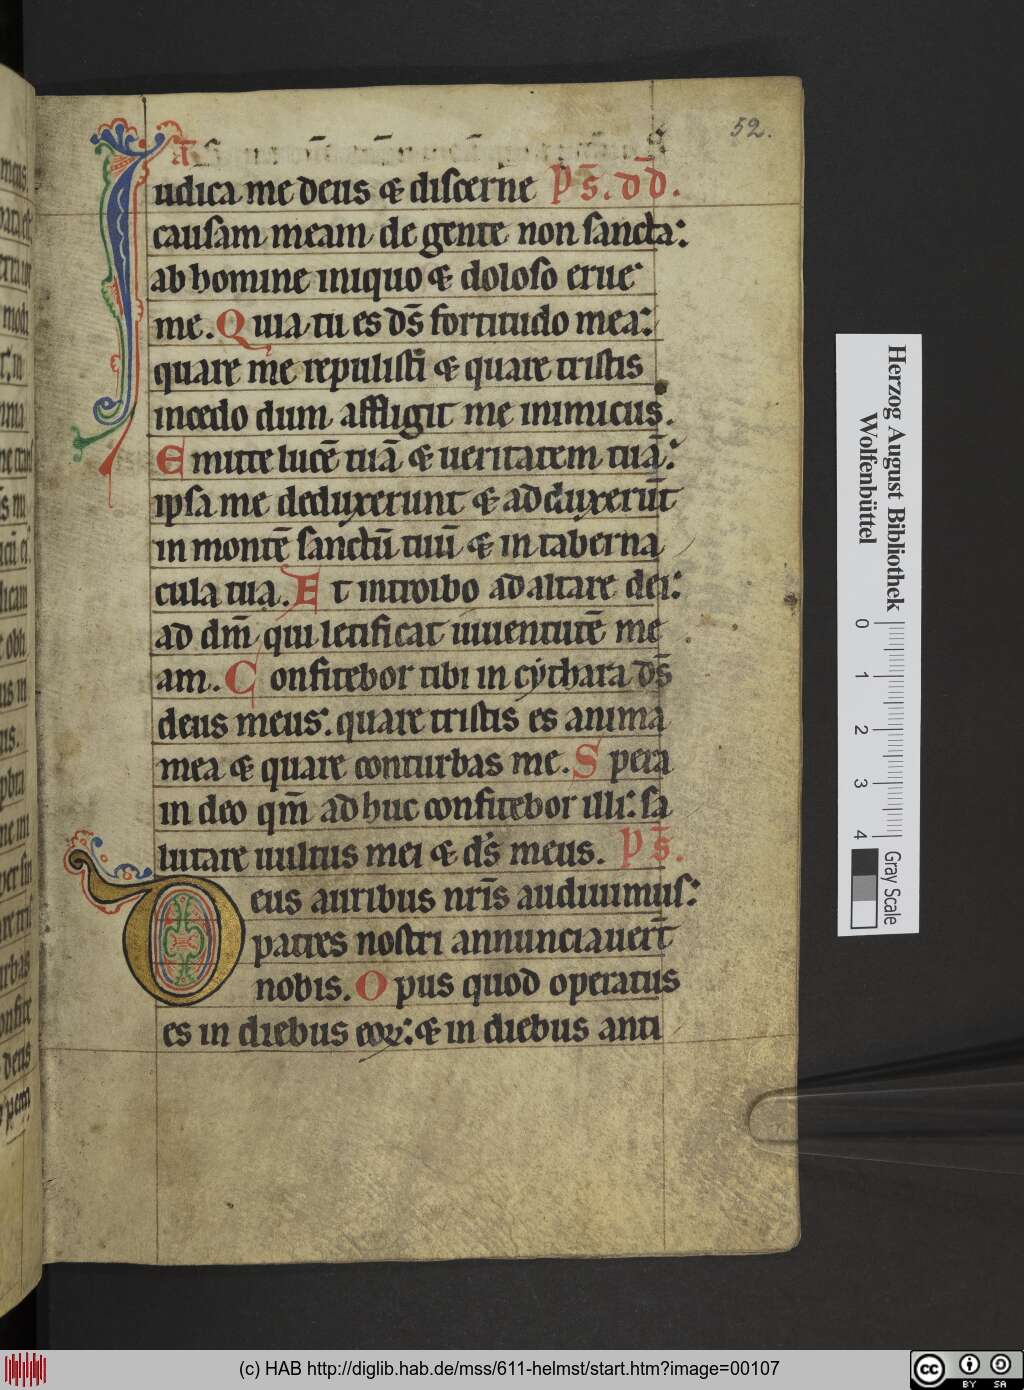 52.
Iudica me deus & discerne p̄s. dd̄.
causam meam de gente non sancta:
ab homine iniquo & doloso erue
me. Quia tu es ds̄ fortitudo mea:
quare me repulisti & quare tristis
incedo dum affligit me inimicus.
Emitte lucē tuā & ueritatem tuā:
ipsa me deduxerunt & adduxerūt
in montē sanctū tuū & in taberna
cula tua. Et introibo ad altare dei:
ad dm̄ qui letificat iuuentutē me
am. Confitebor tibi in cythara ds̄
deus meus: quare tristis es anima
mea & quare conturbas me. Spera
in deo qm̄ adhuc confitebor illi: sa
lutare uultus mei & ds̄ meus. p̄s.
Deus auribus nr̄is audiuimus:
patres nostri annunciauert̄
nobis. Opus quod operatus
es in diebus eoꝝ: & in diebus anti
Herzog August Bibliothek
Wolfenbüttel
0 1 2 3 4
Gray Scale
(c) HAB http://diglib.hab.de/mss/611-helmst/start.htm?image=00107
cc BY SA